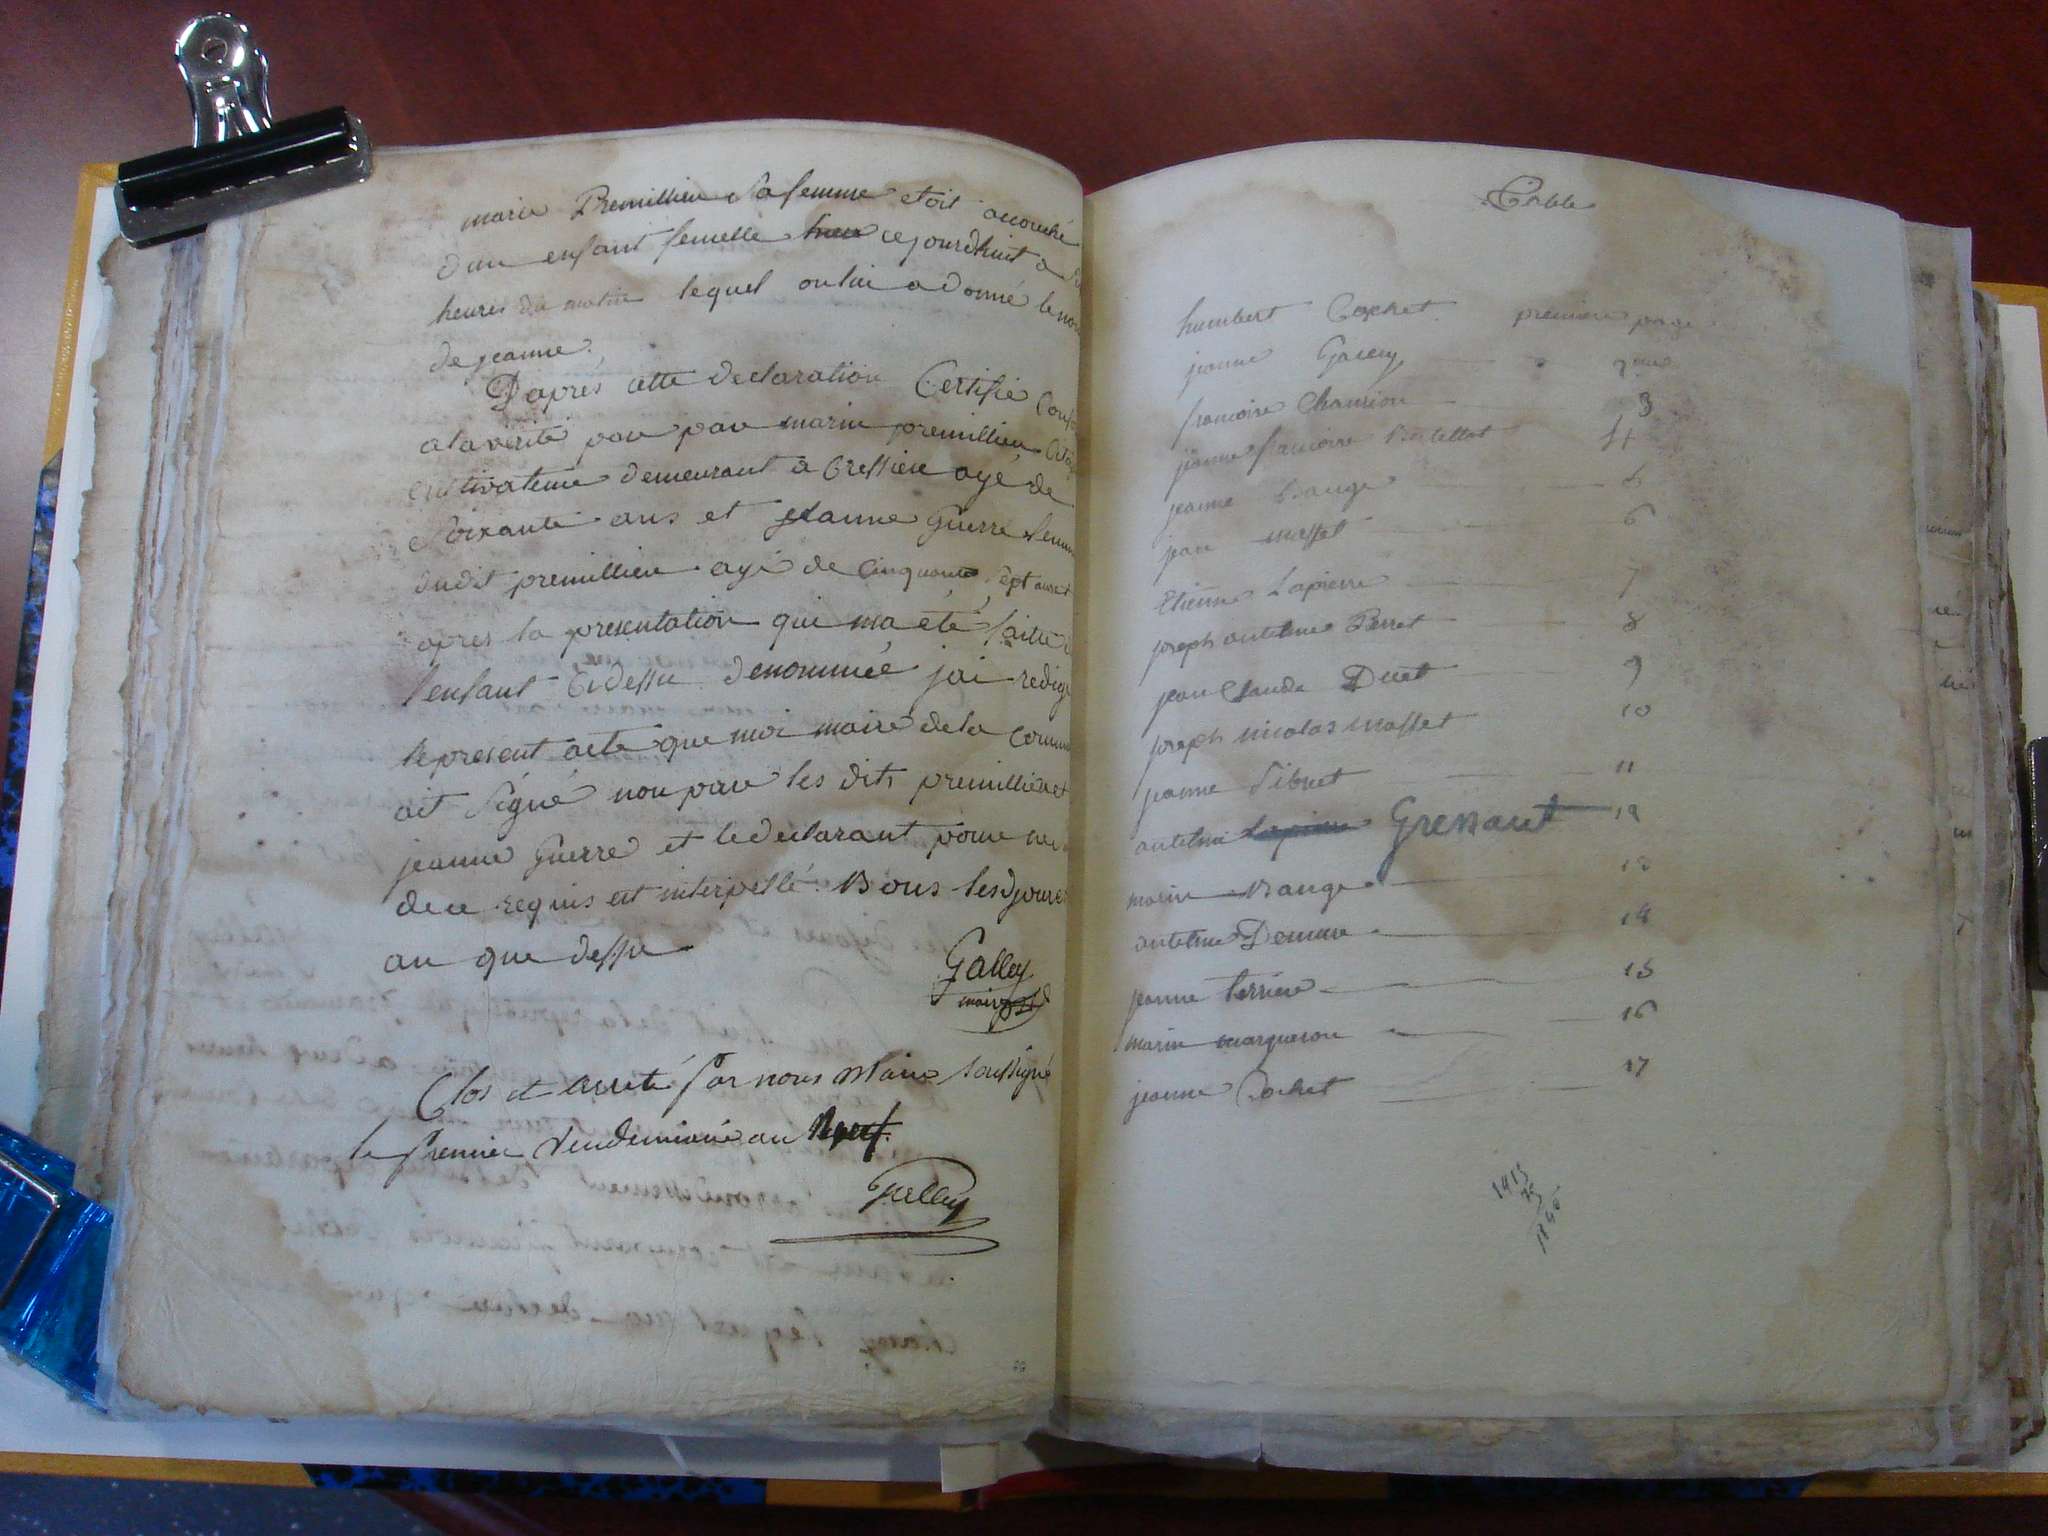 marie Premillieu Sa femme etoit accouché
d'un enfant femelle ce jourdhuit a
heures du matin lequel on lui a donné le nom
de jeanne.
D'apres cette declaration Certifié
a la verité par marin premillieu
cultivateur demeurant a Cressieu agé de
Soixante ans et jeanne Guerre femme
dudit premillieu agé de cinquante Sept ans et
apres la presentation qui ma été faitte
l'enfant Cidessu denommée jai redigé
le present acte que moi maire de la commu
ait Signé non par les dits premillieu et
jeanne Guerre et le declarant pour
de ce requis est interpellé. Bous les jours
an que dessu
Galley
maire
Clos et arreté par nous Maire soussigné
le premier Vendemiaire an Neuf.
Galley
Table
humbert Cochet premiere page
jeanne Galley 2me
francoise Chamion 3
jeanne francoise Bertellot 4
jeanne Bauge 5
jean masset 6
Etienne Lapierre 7
joseph antelme Perret 8
jean Claude Duet 9
joseph nicolas Masset 10
jeanne Sibuet 11
antelme Lapierre Gressant 12
marie Bauge 13
antelme Demure 14
jeanne Perrier 15
marie marqueron 16
jeanne Cochet 17